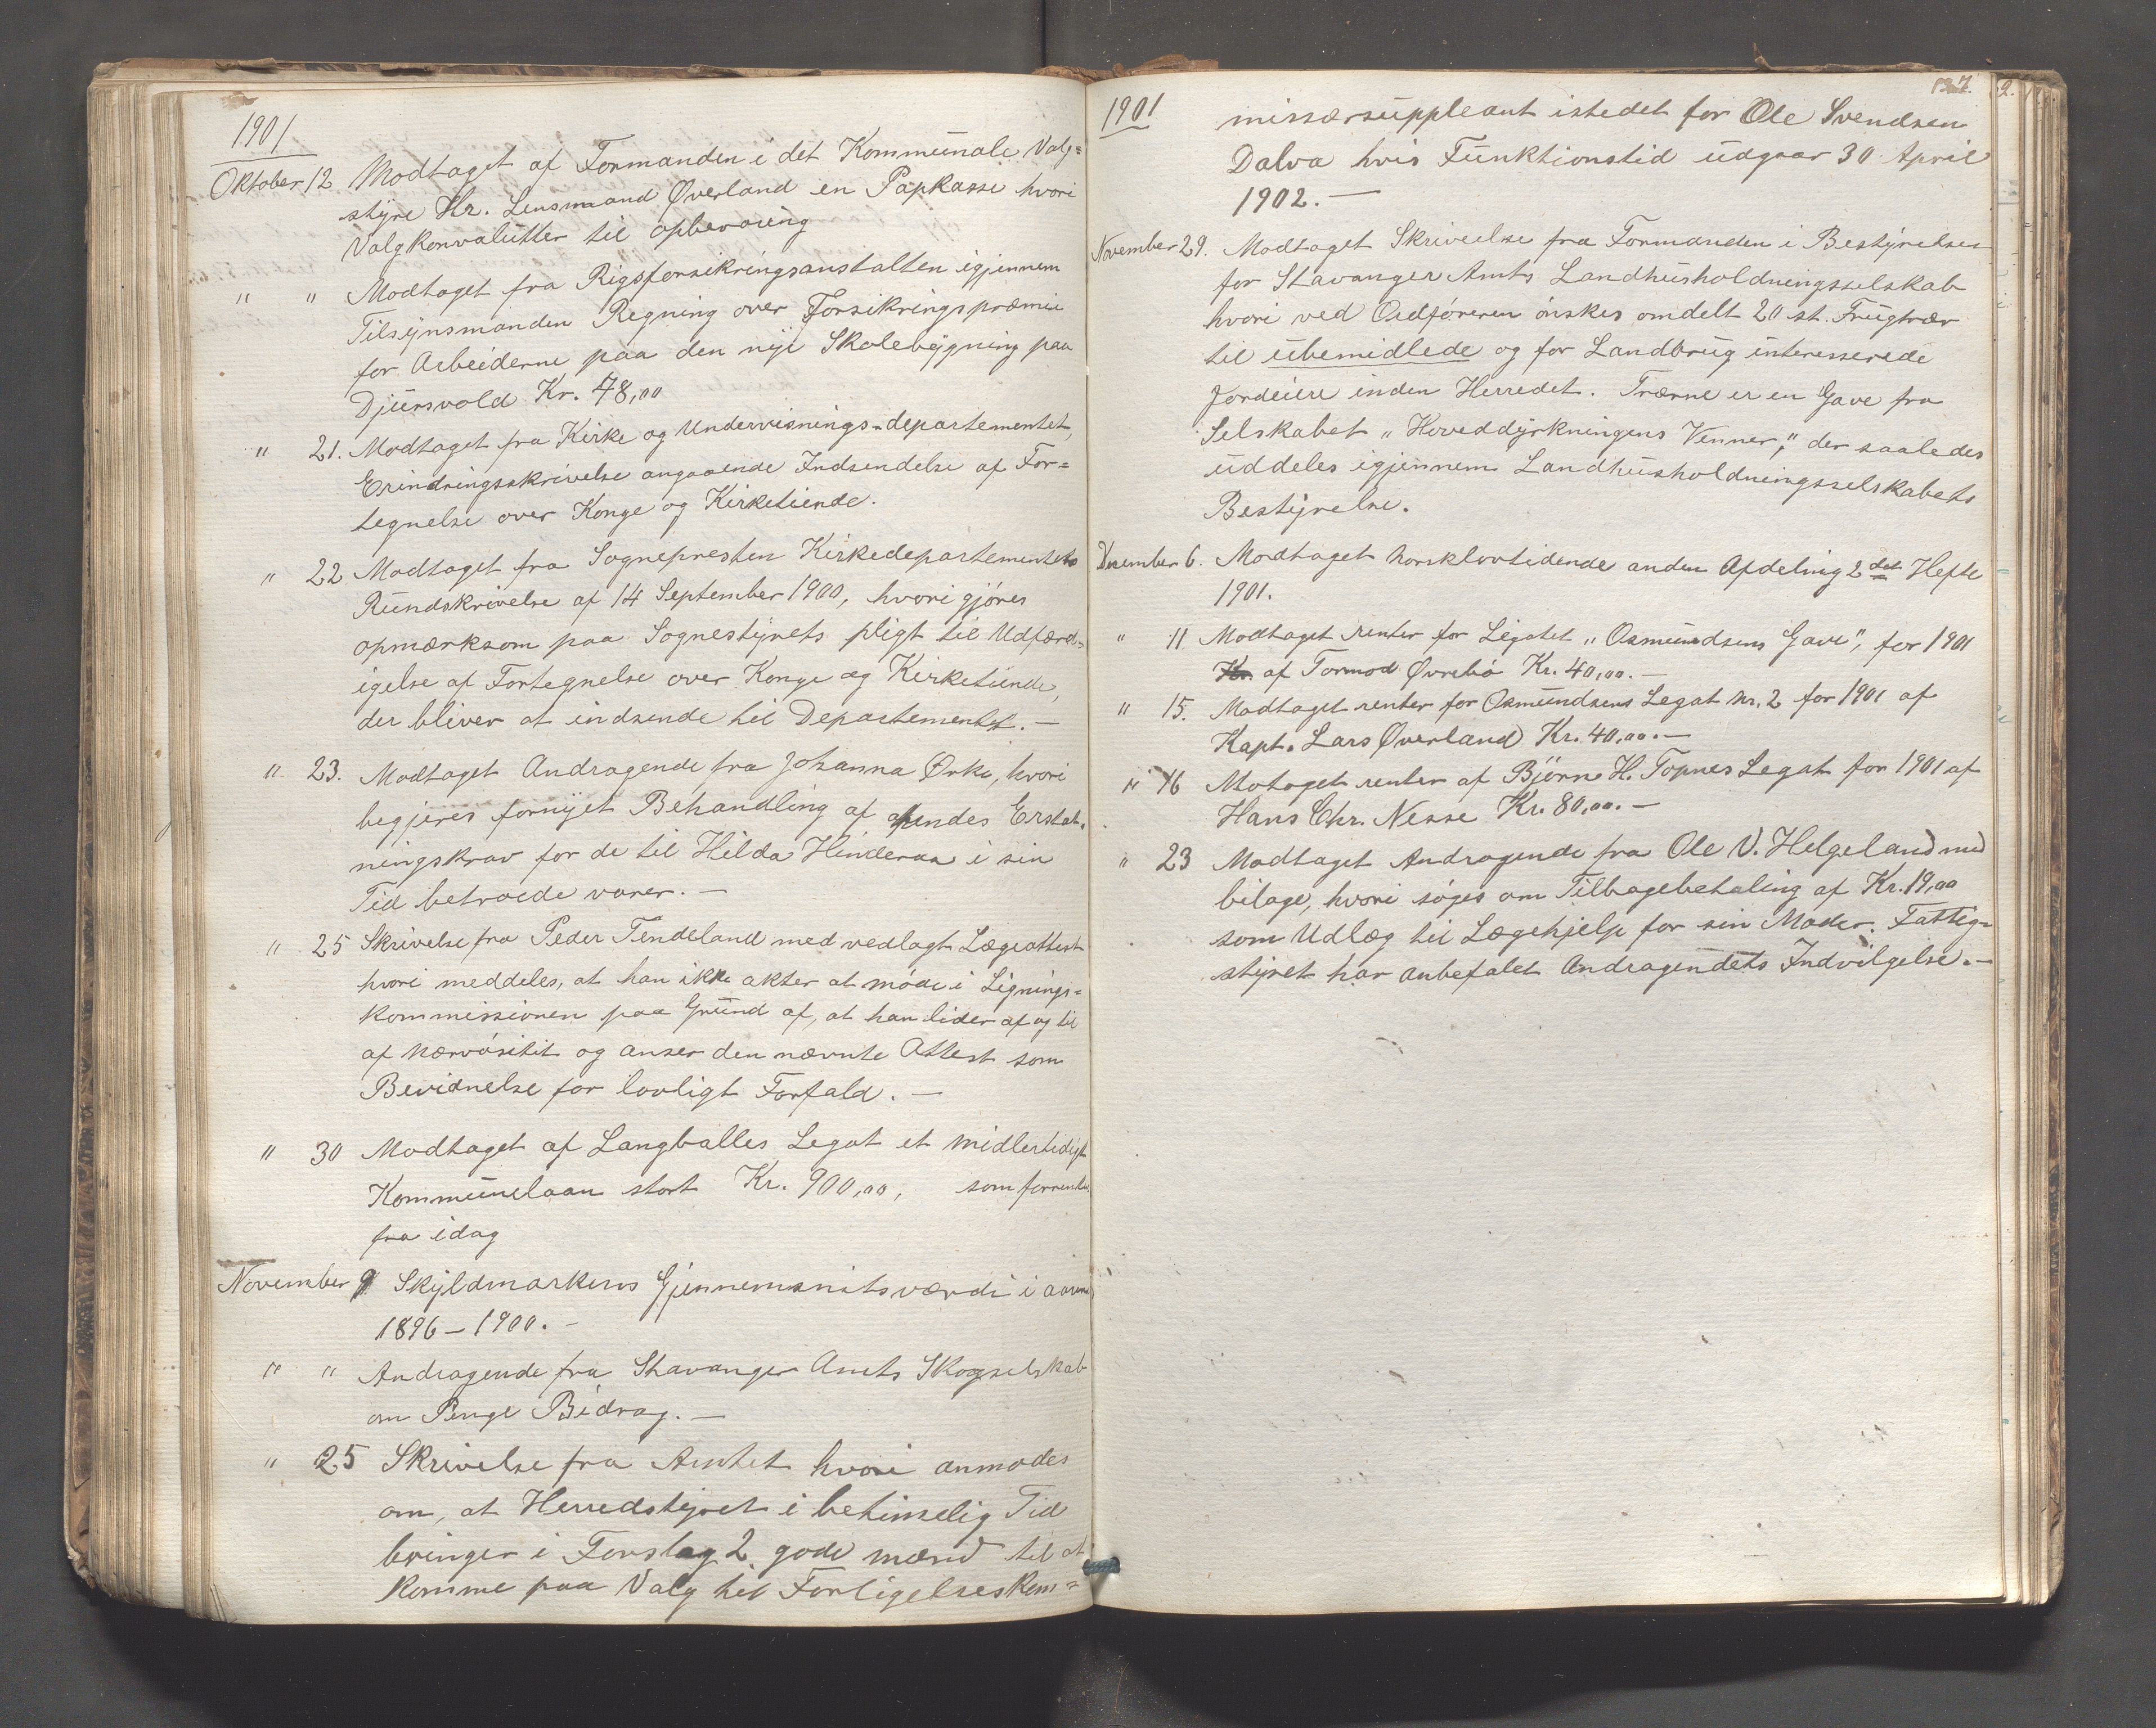 1901
Oktober 12. Modtaget af Formanden i det Kommunale Valg=
styre Hr. Lensmand Øverland en Papkasse hvori
Valgkonvalutter til opbevaring
" " Modtaget fra Rigsforsikringsanstalten igjennem
Tilsynsmanden Regning over Forsikringspræmie
for Arbeiderne paa den nye Skolebygning paa
Djursvold Kr. 78,00
" 21. Modtaget fra Kirke og Undervisnings-departementet,
Erindringsskrivelse angaaende Indsendelse af For=
tegnelse over Konge og Kirketiende.
" 22 Modtaget fra Sognepresten Kirkedepartementets
Rundskrivelse af 14 September 1900, hvori gjøres
opmærksom paa Sognestyrets pligt til Udfærd=
igelse af Fortegnelse over Konge og Kirketiende,
der bliver at indsende til Departementet. —
" 23. Modtaget Andragende fra Johanna Ørke, hvori
begjeres fornyet Behandling af hendes Erstat=
ningskrav for de til Hilda Hinderaa i sin
Tid betroede varer. —
" 25 Skrivelse fra Peder Tendeland med vedlagt Lægeattest
hvori meddeles, at han ikke akter at møde i Lignings=
kommissionen paa Grund af, at han lider af og til
af nærvøsitet og anser den nævnte Attest som
Bevidnelse for lovligt Forfald. —
" 30 Modtaget af Langballes Legat et midlertidigt
Kommunelaan stort Kr. 900,00, som forrentes
fra idag
November 9 Skyldmarkens Gjennemsnitsværdi i aarene
1896 – 1900. –
" " Andragende fra Stavanger Amts Skogselskab
om Penge Bidrag. —
" 25 Skrivelse fra Amtet hvori anmodes
om, at Herredstyret i betimelig Tid
bringer i Forslag 2 gode mænd til at
komme paa Valg til Forligelseskom=
137.
2.
1901
missærsuppleant istedet for Ole Svendsen
Dalva hvis Funktionstid udgaar 30 April
1902. —
November 29. Modtaget Skrivelse fra Formanden i Bestyrelsen
for Stavanger Amts Landhusholdningsselskab
hvori ved Ordføreren ønskes omdelt 20 st. Frugtrær
til ubemidlede og for Landbrug interesserede
Jordeiere inden Herredet. Trærne er en Gave fra
Selskabet „Hoveddyrkningens Venner," der saaledes
uddeles igjennem Landhusholdningsselskabets
Bestyrelse.
December 6. Modtaget norsklovtidende anden Afdeling 2det Hefte
1901.
" 11 Modtaget renter for Legatet „Osmundsens Gave", for 1901
Kr. af Tormod Øvrebø Kr. 40,00. —
" 15. Modtaget renter for Osmundsens Legat nr. 2 for 1901 af
Kapt. Lars Øverland Kr. 40,00. —
" 16 Motaget renter af Bjørne H. Topnes Legat for 1901 af
Hans Chr. Nesse Kr. 80,00. —
" 23 Modtaget Andragende fra Ole V. Helgeland med
bilage, hvori søges om Tilbagebetaling af Kr. 19,00
som Udlæg til Lægehjelp for sin Moder. Fattig=
styret har anbefalet Andragendets Indvilgelse. —